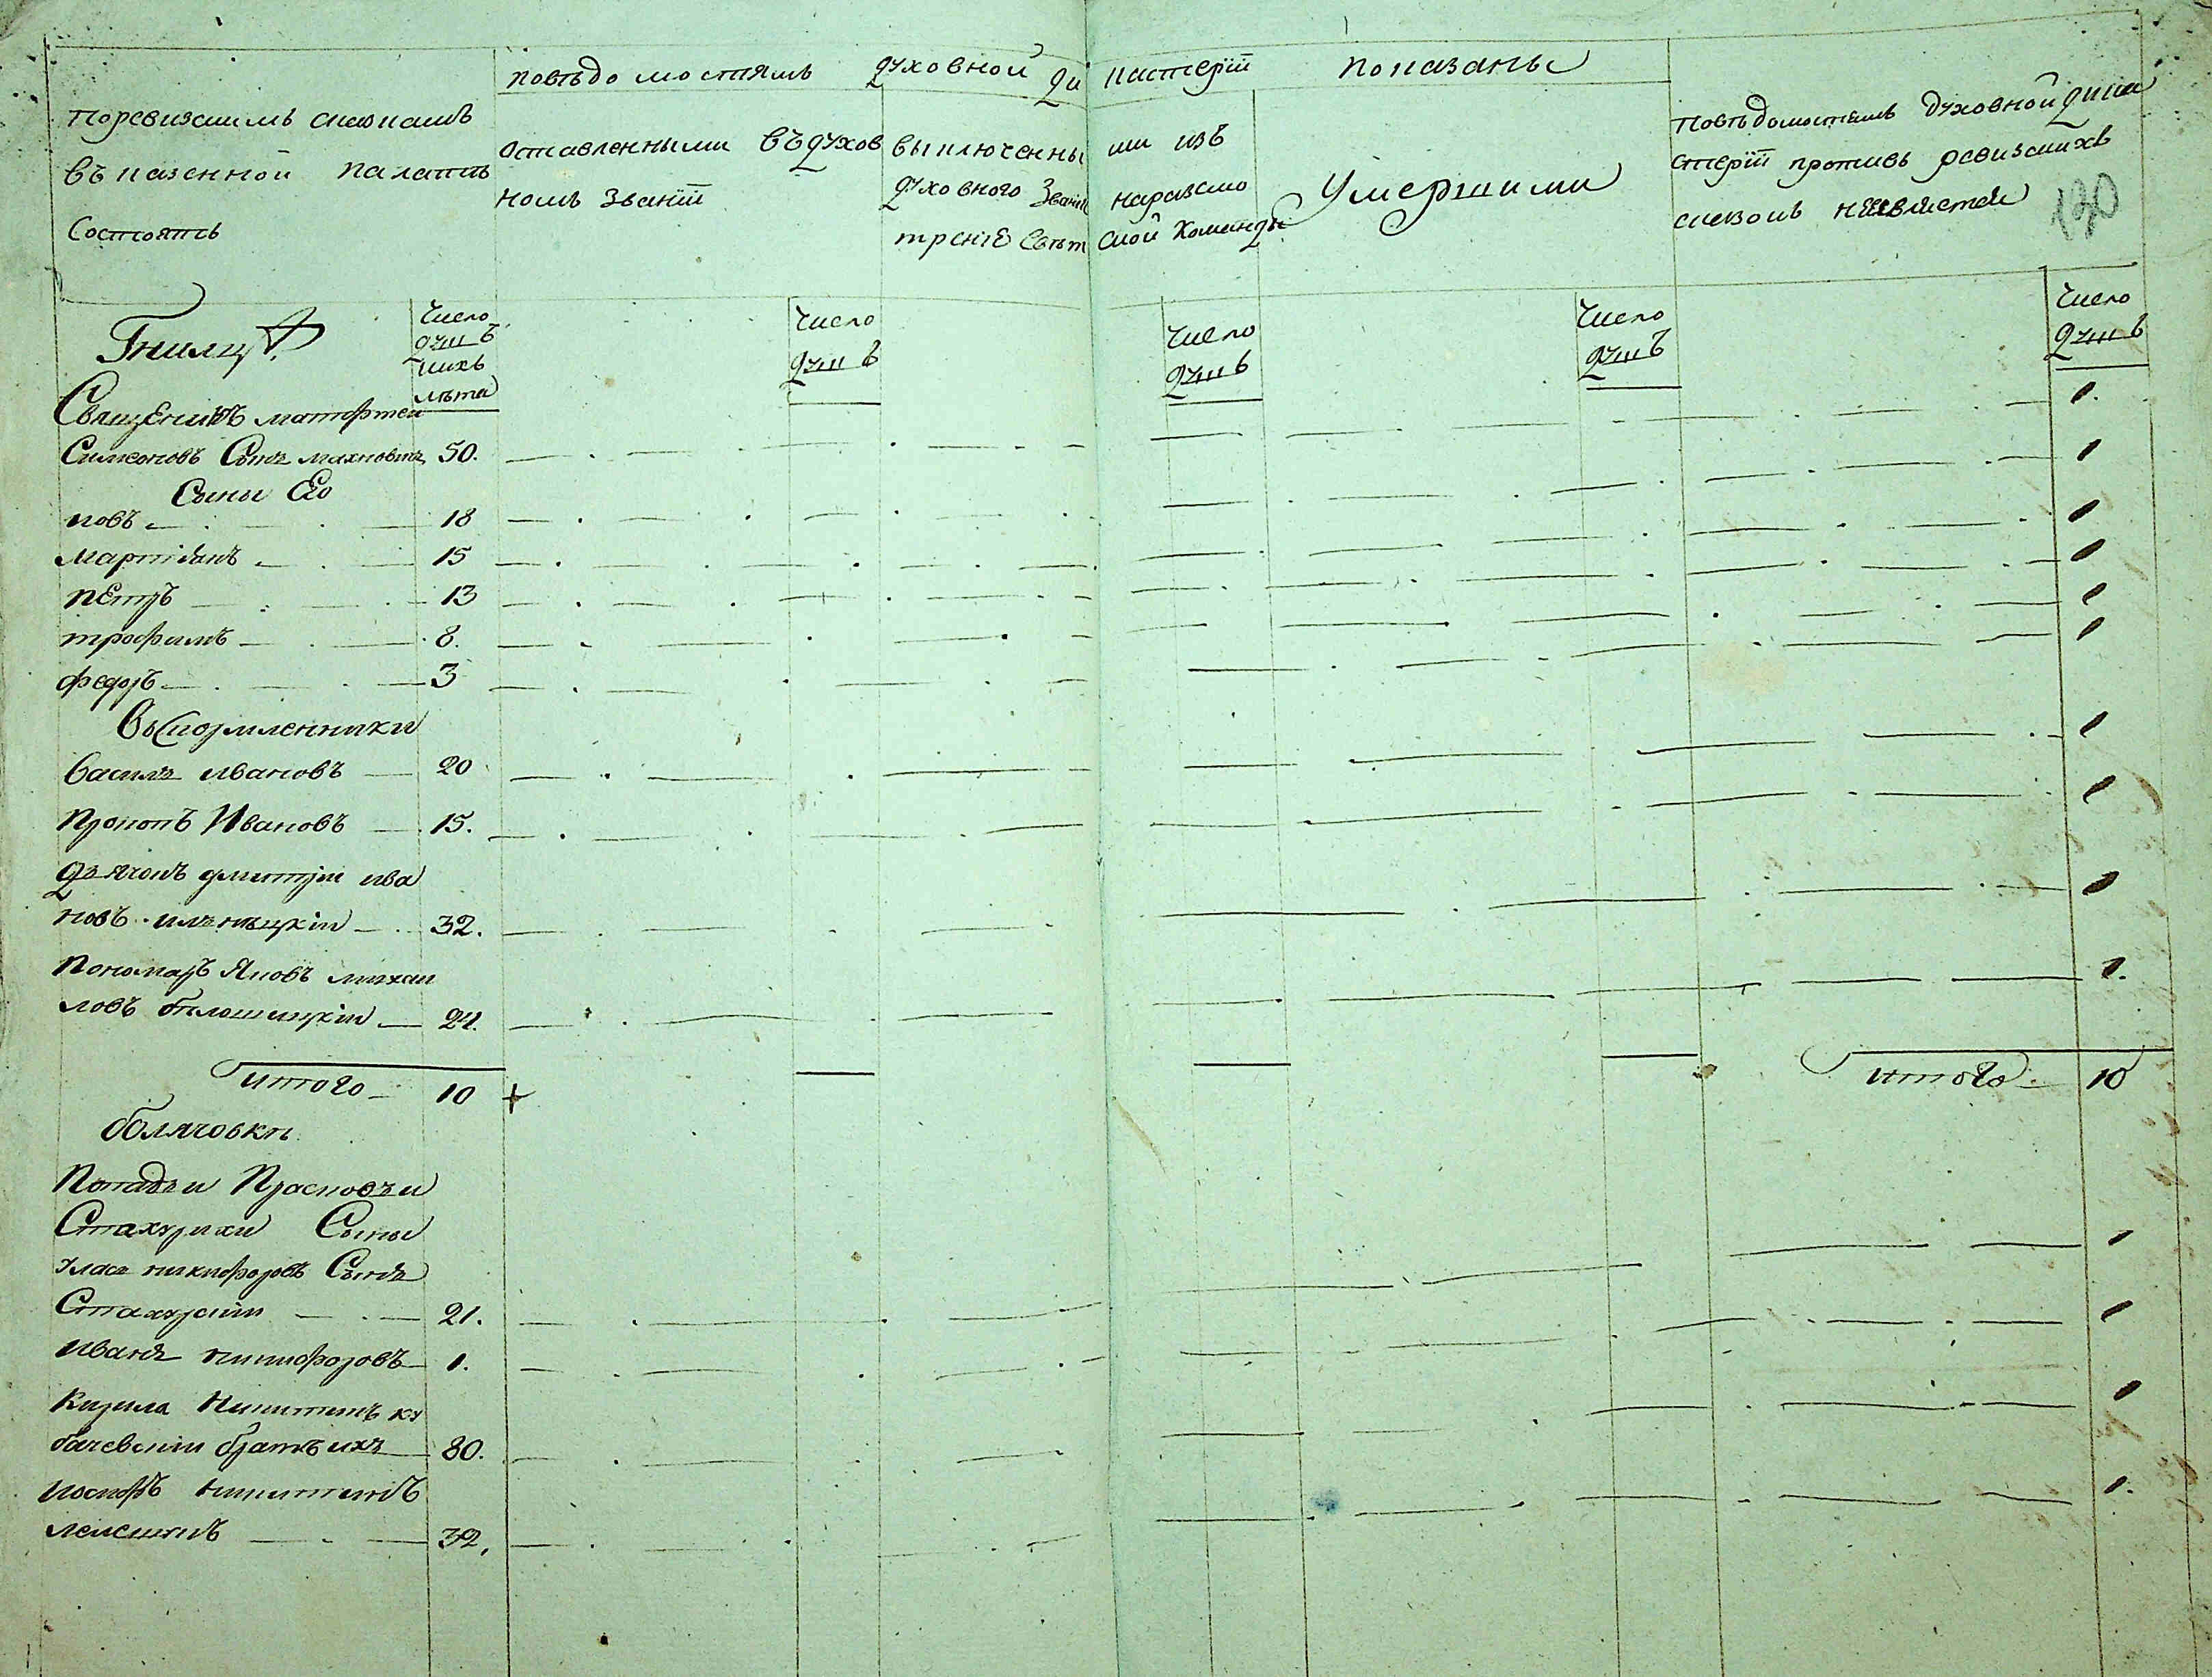 По ревизскимъ сказкамъ
въ казенной палатѣ
Состоятъ
По вѣдомостямъ духовной дикастеріи показаны
оставленными въ духов
номъ званіи
выключенными изъ
духовного званія на разсмо
треніе свѣтской команды
Умершими
По вѣдомостямъ духовной дика
стеріи противъ ревизскихъ
сказокъ не явилися
130
Гнилиц
Число душъ ихъ лѣта
Число душъ
Число душъ
Число душъ
Число душъ
Священикъ матфтей
Симеоновъ Сынъ махновичъ 50. 1.
Сыны Его
яковъ 18 1
мартіанъ 15 1
пЕтръ 13 1
трофимъ 8. 1
федоръ 3 1
Воскормленники
василъ ивановъ 20 1
Прокопъ Ивановъ 15. 1
дъячокъ дмитрій ива
новъ илъницкій 32. 1
Пономаръ Яковъ михаи
ловъ бѣлошицкій 24. 1.
итого 10 итого 10
болячовки
Попадъи Прасковъи
Стахурихи Сыны
уласъ никифоровъ Сынъ
Стахурскій 21. 1
Иванъ никифоровъ 1. 1
Кирила Никитинъ ку
бачевскій братъ ихъ 30. 1
иосифъ никитинъ
32. 1.